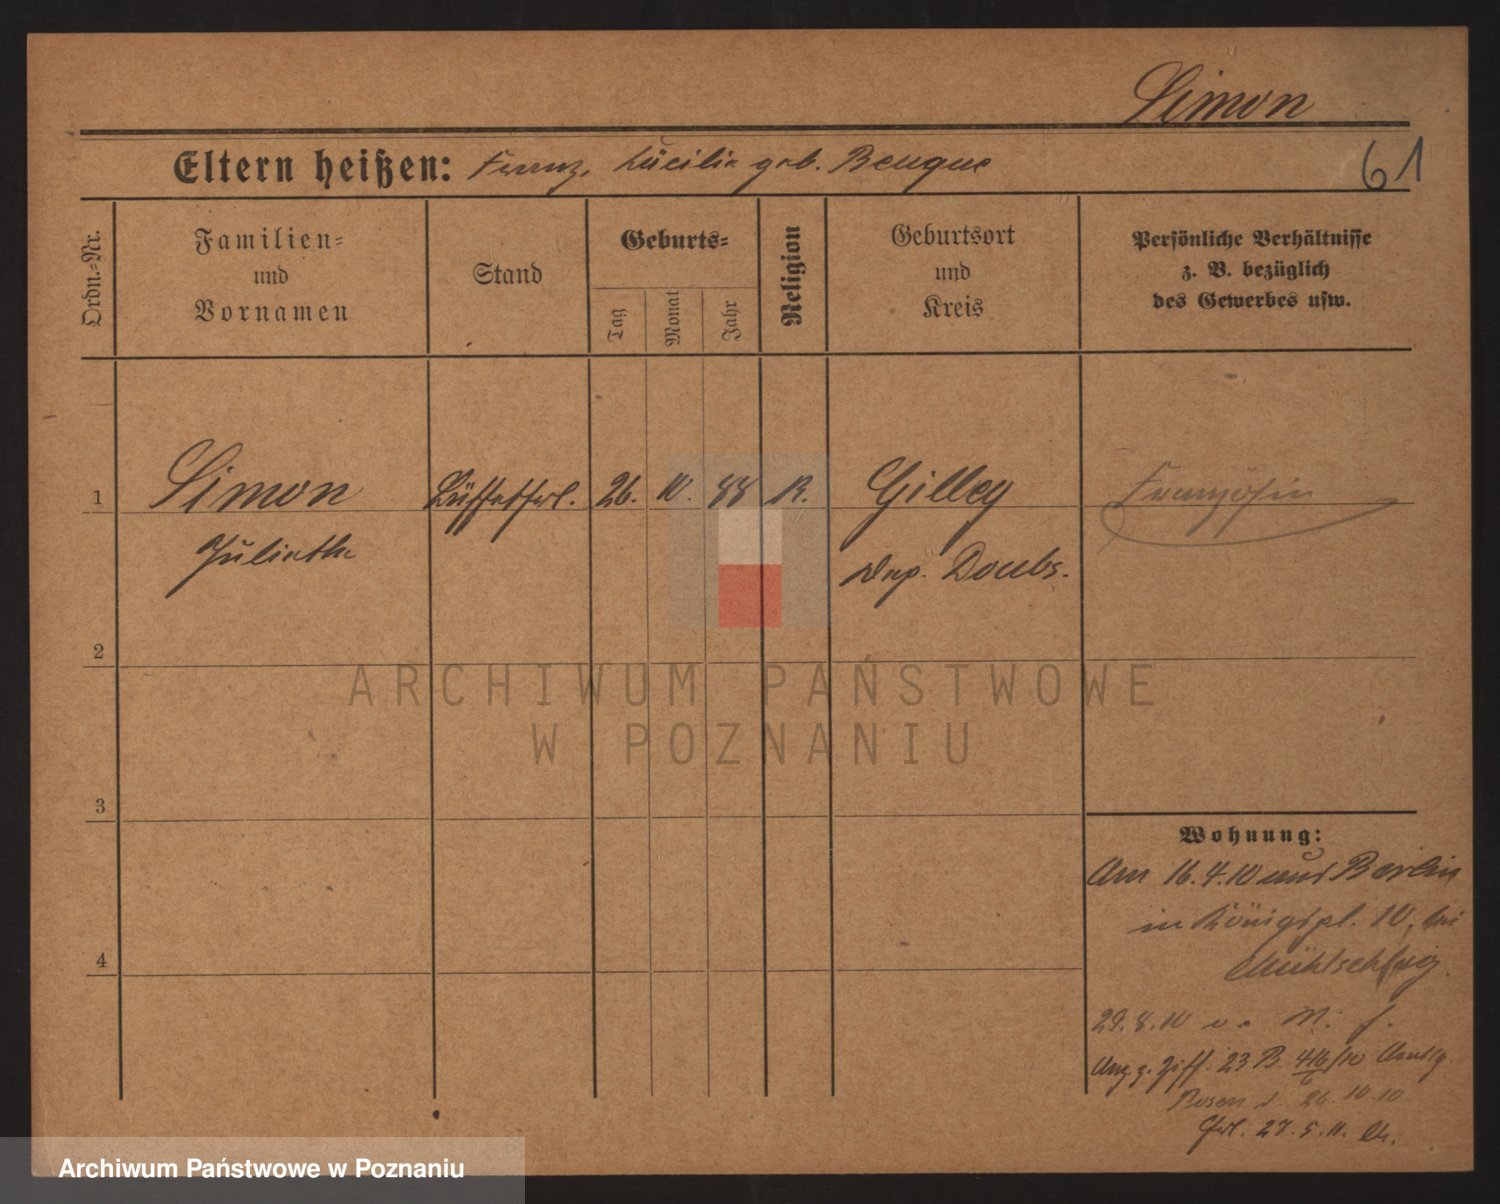 Simon
61
Eltern heißen: Franz, Lücilia geb. Beuque
Ordn.-Nr.
Familien-
und
Vornamen
Stand
Geburts-
Tag
Monat
Jahr
Religion
Geburtsort
und
Kreis
Persönliche Verhältnisse
z. B. bezüglich
des Gewerbes usw.
1
Simon
Büffetfrl.
26.
10.
88
R.
Gilley
Französin
Dep. Doubs.
2
3
4
Wohnung:
Am 16.4.10 aus Berlin
in Königspl. 10, bei
29.8.10 M.
Anz. z. Ziff. 23 B. 10
Posen 26.10.10
27.5.11.
ARCHIWUM PAŃSTWOWE
W POZNANIU
Archiwum Państwowe w Poznaniu